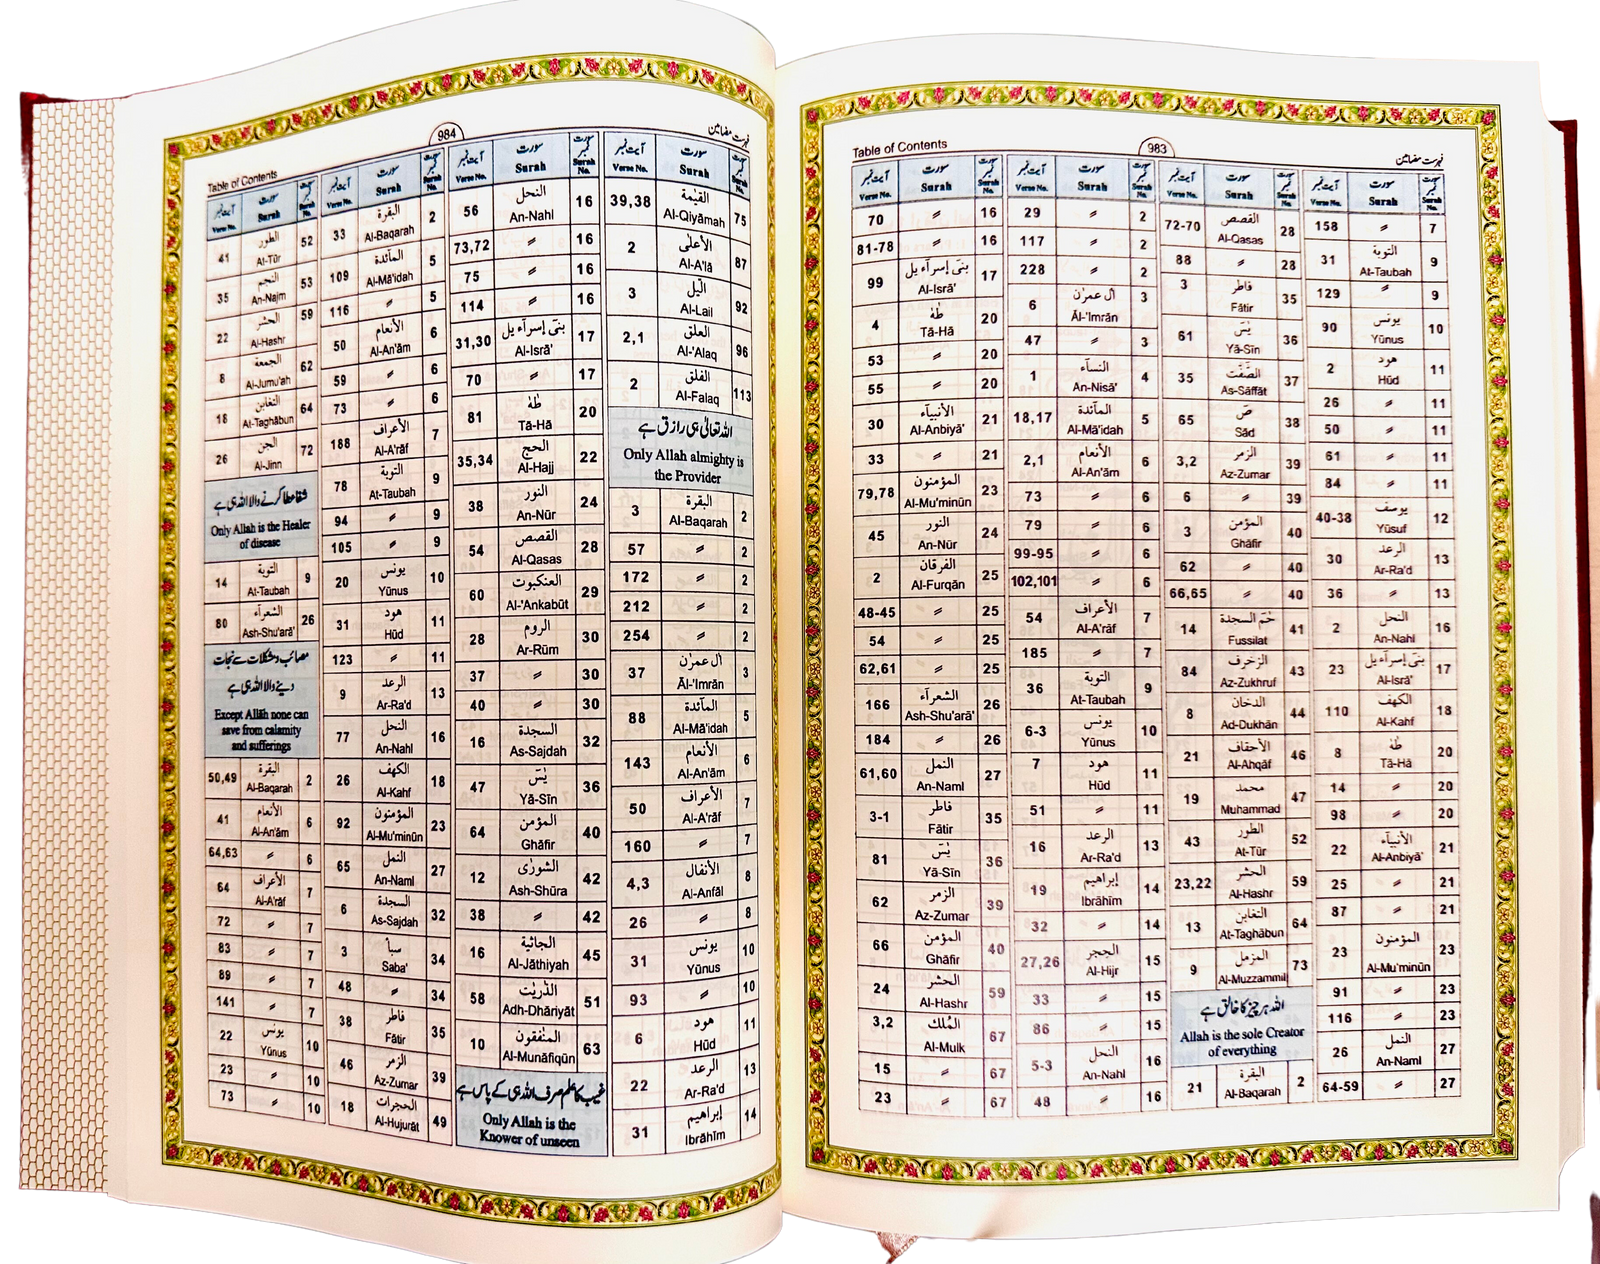 Table of Contents 983 فہرست مضامین
آیت نمبر سورت سورت نمبر
Verse No. Surah Surah No.
158 〃 7
التوبة
31 At-Taubah 9
129 〃 9
يونس
90 Yūnus 10
هود
2 Hūd 11
26 〃 11
50 〃 11
61 〃 11
84 〃 11
يوسف
40-38 Yūsuf 12
الرعد
30 Ar-Ra'd 13
36 〃 13
النحل
2 An-Nahl 16
بنیٓ إسرآءيل
23 Al-Isrā' 17
الكهف
110 Al-Kahf 18
طٰهٰ
8 Tā-Hā 20
14 〃 20
98 〃 20
الأنبيآء
22 Al-Anbiyā' 21
25 〃 21
87 〃 21
المؤمنون
23 Al-Mu'minūn 23
91 〃 23
116 〃 23
النمل
26 An-Naml 27
64-59 〃 27
آیت نمبر سورت سورت نمبر
Verse No. Surah Surah No.
القصص
72-70 Al-Qasas 28
88 〃 28
فاطر
3 Fātir 35
يٰسٓ
61 Yā-Sīn 36
الصّٰفّٰت
35 As-Sāffāt 37
صٓ
65 Sād 38
الزمر
3,2 Az-Zumar 39
6 〃 39
المؤمن
3 Ghāfir 40
62 〃 40
66,65 〃 40
حٰمٓ السجدة
14 Fussilat 41
الزخرف
84 Az-Zukhruf 43
الدخان
8 Ad-Dukhān 44
الأحقاف
21 Al-Ahqāf 46
محمد
19 Muhammad 47
الطور
43 At-Tūr 52
الحشر
23,22 Al-Hashr 59
التغابن
13 At-Taghābun 64
المزمل
9 Al-Muzzammil 73
اللہ ہر چیز کا خالق ہے
Allah is the sole Creator
of everything
البقرة
21 Al-Baqarah 2
آیت نمبر سورت سورت نمبر
Verse No. Surah Surah No.
29 〃 2
117 〃 2
228 〃 2
اٰل عمرٰن
6 Āl-'Imrān 3
47 〃 3
النسآء
1 An-Nisā' 4
المآئدة
18,17 Al-Mā'idah 5
الأنعام
2,1 Al-An'ām 6
73 〃 6
79 〃 6
99-95 〃 6
102,101 〃 6
الأعراف
54 Al-A'rāf 7
185 〃 7
التوبة
36 At-Taubah 9
يونس
6-3 Yūnus 10
هود
7 Hūd 11
51 〃 11
الرعد
16 Ar-Ra'd 13
إبراهيم
19 Ibrāhīm 14
32 〃 14
الحجر
27,26 Al-Hijr 15
33 〃 15
86 〃 15
النحل
5-3 An-Nahl 16
48 〃 16
آیت نمبر سورت سورت نمبر
Verse No. Surah Surah No.
70 〃 16
81-78 〃 16
بنیٓ إسرآءيل
99 Al-Isrā' 17
طٰهٰ
4 Tā-Hā 20
53 〃 20
55 〃 20
الأنبيآء
30 Al-Anbiyā' 21
33 〃 21
المؤمنون
79,78 Al-Mu'minūn 23
النور
45 An-Nūr 24
الفرقان
2 Al-Furqān 25
48-45 〃 25
54 〃 25
62,61 〃 25
الشعرآء
166 Ash-Shu'arā' 26
184 〃 26
النمل
61,60 An-Naml 27
فاطر
3-1 Fātir 35
يٰسٓ
81 Yā-Sīn 36
الزمر
62 Az-Zumar 39
المؤمن
66 Ghāfir 40
الحشر
24 Al-Hashr 59
المُلك
3,2 Al-Mulk 67
15 〃 67
23 〃 67
Table of Contents 984 فہرست مضامین
آیت نمبر سورت سورت نمبر
Verse No. Surah Surah No.
القيٰمة
39,38 Al-Qiyāmah 75
الأعلٰى
2 Al-A'lā 87
الّيل
3 Al-Lail 92
العلق
2,1 Al-'Alaq 96
الفلق
2 Al-Falaq 113
اللہ تعالیٰ ہی رازق ہے
Only Allah almighty is
the Provider
البقرة
3 Al-Baqarah 2
57 〃 2
172 〃 2
212 〃 2
254 〃 2
اٰل عمرٰن
37 Āl-'Imrān 3
المآئدة
88 Al-Mā'idah 5
الأنعام
143 Al-An'ām 6
الأعراف
50 Al-A'rāf 7
160 〃 7
الأنفال
4,3 Al-Anfāl 8
26 〃 8
يونس
31 Yūnus 10
93 〃 10
هود
6 Hūd 11
الرعد
22 Ar-Ra'd 13
إبراهيم
31 Ibrāhīm 14
آیت نمبر سورت سورت نمبر
Verse No. Surah Surah No.
النحل
56 An-Nahl 16
73,72 〃 16
75 〃 16
114 〃 16
بنیٓ إسرآءيل
31,30 Al-Isrā' 17
70 〃 17
طٰهٰ
81 Tā-Hā 20
الحج
35,34 Al-Hajj 22
النور
38 An-Nūr 24
القصص
54 Al-Qasas 28
العنكبوت
60 Al-'Ankabūt 29
الروم
28 Ar-Rūm 30
37 〃 30
40 〃 30
السجدة
16 As-Sajdah 32
يٰسٓ
47 Yā-Sīn 36
المؤمن
64 Ghāfir 40
الشورٰى
12 Ash-Shūra 42
38 〃 42
الجاثية
16 Al-Jāthiyah 45
الذّٰريٰت
58 Adh-Dhāriyāt 51
المنٰفقون
10 Al-Munāfiqūn 63
غیب کا علم صرف اللہ ہی کے پاس ہے
Only Allah is the
Knower of unseen
آیت نمبر سورت سورت نمبر
Verse No. Surah Surah No.
البقرة
33 Al-Baqarah 2
المآئدة
109 Al-Mā'idah 5
116 〃 5
الأنعام
50 Al-An'ām 6
59 〃 6
73 〃 6
الأعراف
188 Al-A'rāf 7
التوبة
78 At-Taubah 9
94 〃 9
105 〃 9
يونس
20 Yūnus 10
هود
31 Hūd 11
123 〃 11
الرعد
9 Ar-Ra'd 13
النحل
77 An-Nahl 16
الكهف
26 Al-Kahf 18
المؤمنون
92 Al-Mu'minūn 23
النمل
65 An-Naml 27
السجدة
6 As-Sajdah 32
سبأ
3 Saba' 34
48 〃 34
فاطر
38 Fātir 35
الزمر
46 Az-Zumar 39
الحجرات
18 Al-Hujurāt 49
آیت نمبر سورت سورت نمبر
Verse No. Surah Surah No.
الطور
41 At-Tūr 52
النجم
35 An-Najm 53
الحشر
22 Al-Hashr 59
الجمعة
8 Al-Jumu'ah 62
التغابن
18 At-Taghābun 64
الجن
26 Al-Jinn 72
شفا عطا کرنے والا اللہ ہی ہے
Only Allah is the Healer
of disease
التوبة
14 At-Taubah 9
الشعرآء
80 Ash-Shu'arā' 26
مصائب و مشکلات سے نجات
دینے والا اللہ ہی ہے
Except Allāh none can
save from calamity
and sufferings
البقرة
50,49 Al-Baqarah 2
الأنعام
41 Al-An'ām 6
64,63 〃 6
الأعراف
64 Al-A'rāf 7
72 〃 7
83 〃 7
89 〃 7
141 〃 7
يونس
22 Yūnus 10
23 〃 10
73 〃 10